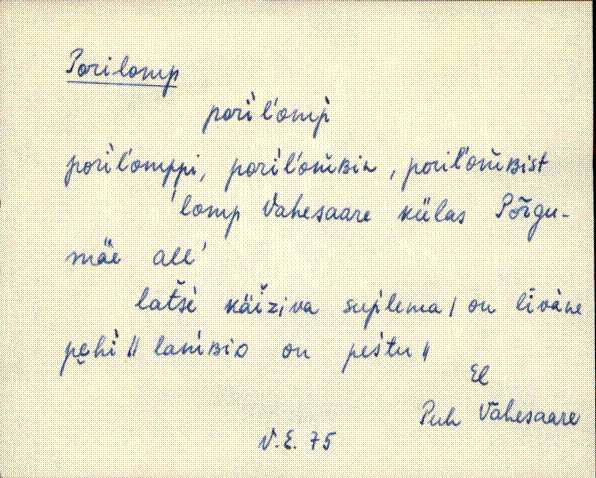 Porilomp
pori l'omp
pori l'omppi, pori l'om̆ʙin, pori l'om̆ʙist
'lomp Vahesaare külas Põrgu-
mäe all'
latši käiziva suplema / on līväne
pęhi // lamʙiᴅ on peśtu //
El
Puh Vahesaare
V.E. 75